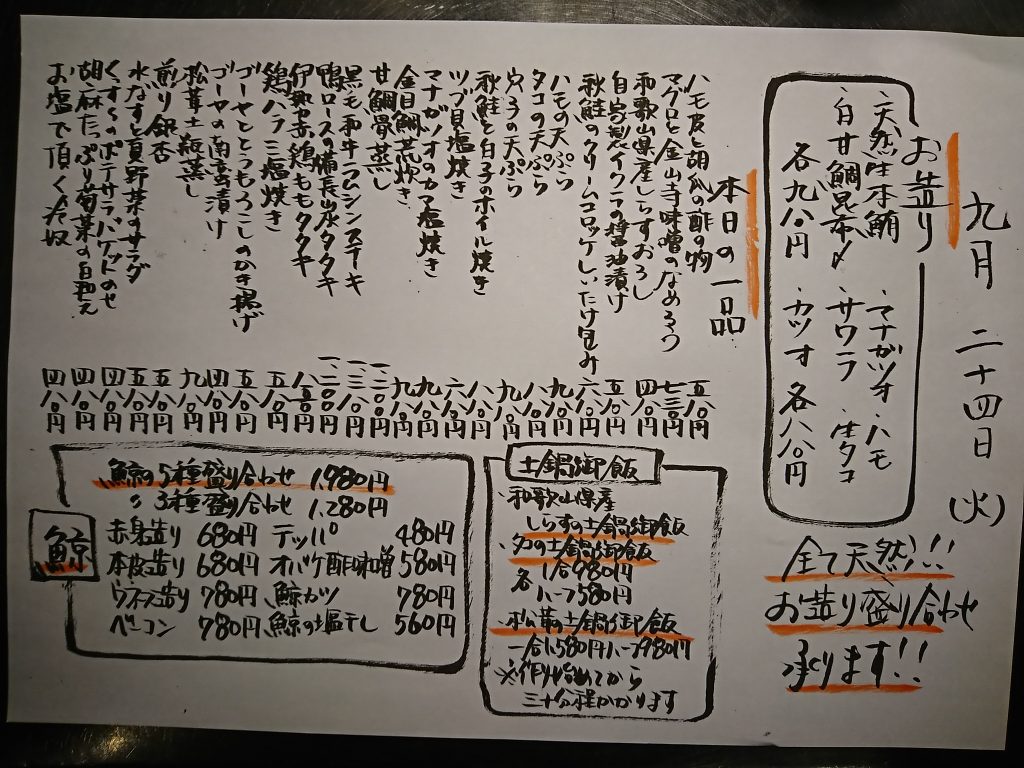 九月 二十四日 (火)
お造り
・天然生本鮪 ・マナガツオ ・ハモ
・白甘鯛昆布〆 ・サワラ ・生タコ
各九八〇円 カツオ 各八八〇円
全て天然!!
お造り盛り合わせ
承ります!!
本日の一品
ハモ皮と胡瓜の酢の物 五八〇円
マグロと金山寺味噌のなめろう 七三〇円
和歌山県産しらすおろし 四八〇円
自家製イクラの醤油漬け 五八〇円
秋鮭のクリームコロッケしいたけ包み 六八〇円
ハモの天ぷら 九八〇円
タコの天ぷら 八八〇円
穴子の天ぷら 九八〇円
秋鮭と白子のホイル焼き 八八〇円
ツブ貝塩焼き 六八〇円
マナガツオのカマ塩焼き 九八〇円
金目鯛荒炊き 九八〇円
甘鯛骨蒸し 一二八〇円
黒毛和牛ラムシンステーキ 一三八〇円
鴨ロースの備長炭タタキ 一二〇〇円
伊勢赤鶏ももタタキ 八五〇円
鶏ハラミ塩焼き 五八〇円
ゴーヤととうもろこしのかき揚げ 五八〇円
ゴーヤの南蛮漬け 四八〇円
松茸土瓶蒸し 九八〇円
煎り銀杏 五八〇円
水なすと夏野菜のサラダ 五八〇円
くじらのポテサラバゲットのせ 四八〇円
胡麻たっぷり菊菜の白和え 四八〇円
お塩で頂く冷奴 四八〇円
土鍋御飯
・和歌山県産
しらすの土鍋御飯
・タコの土鍋御飯
各 1合980円
ハーフ580円
・松茸の土鍋御飯
一合1,580円ハーフ980円
※作り始めてから
三十分程かかります
鯨
鯨の5種盛り合わせ 1,980円
〃 3種盛り合わせ 1,280円
赤身造り 680円 テッパ 480円
本皮造り 680円 オバケ酢味噌 580円
ウネス造り 780円 鯨カツ 780円
ベーコン 780円 鯨の塩干し 560円